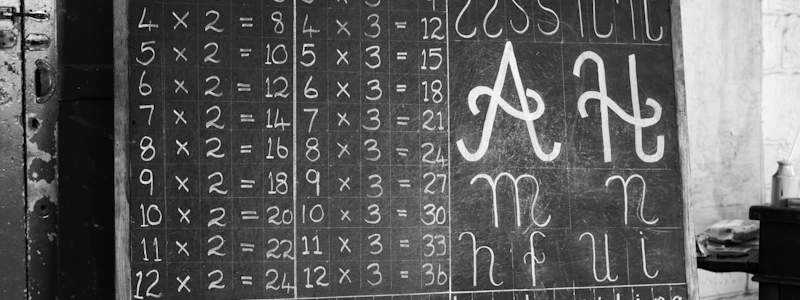 4 × 2 = 8
5 × 2 = 10
6 × 2 = 12
7 × 2 = 14
8 × 2 = 16
9 × 2 = 18
10 × 2 = 20
11 × 2 = 22
12 × 2 = 24
4 × 3 = 12
5 × 3 = 15
6 × 3 = 18
7 × 3 = 21
8 × 3 = 24
9 × 3 = 27
10 × 3 = 30
11 × 3 = 33
12 × 3 = 36
A H
m n
h f u i